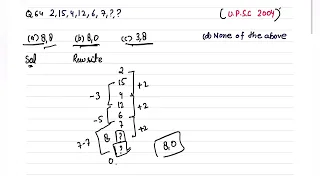 Q64 2,15,4,12,6,7,?,? (U.P.S.C 2004)
(a) 8,8 (b) 8,0 (c) 3,8 (d) None of the above
Sol Rewrite
2
15 +2
-3 4
12 +2
-5 6
7 +2
7-7 8 ?
?
0
8,0